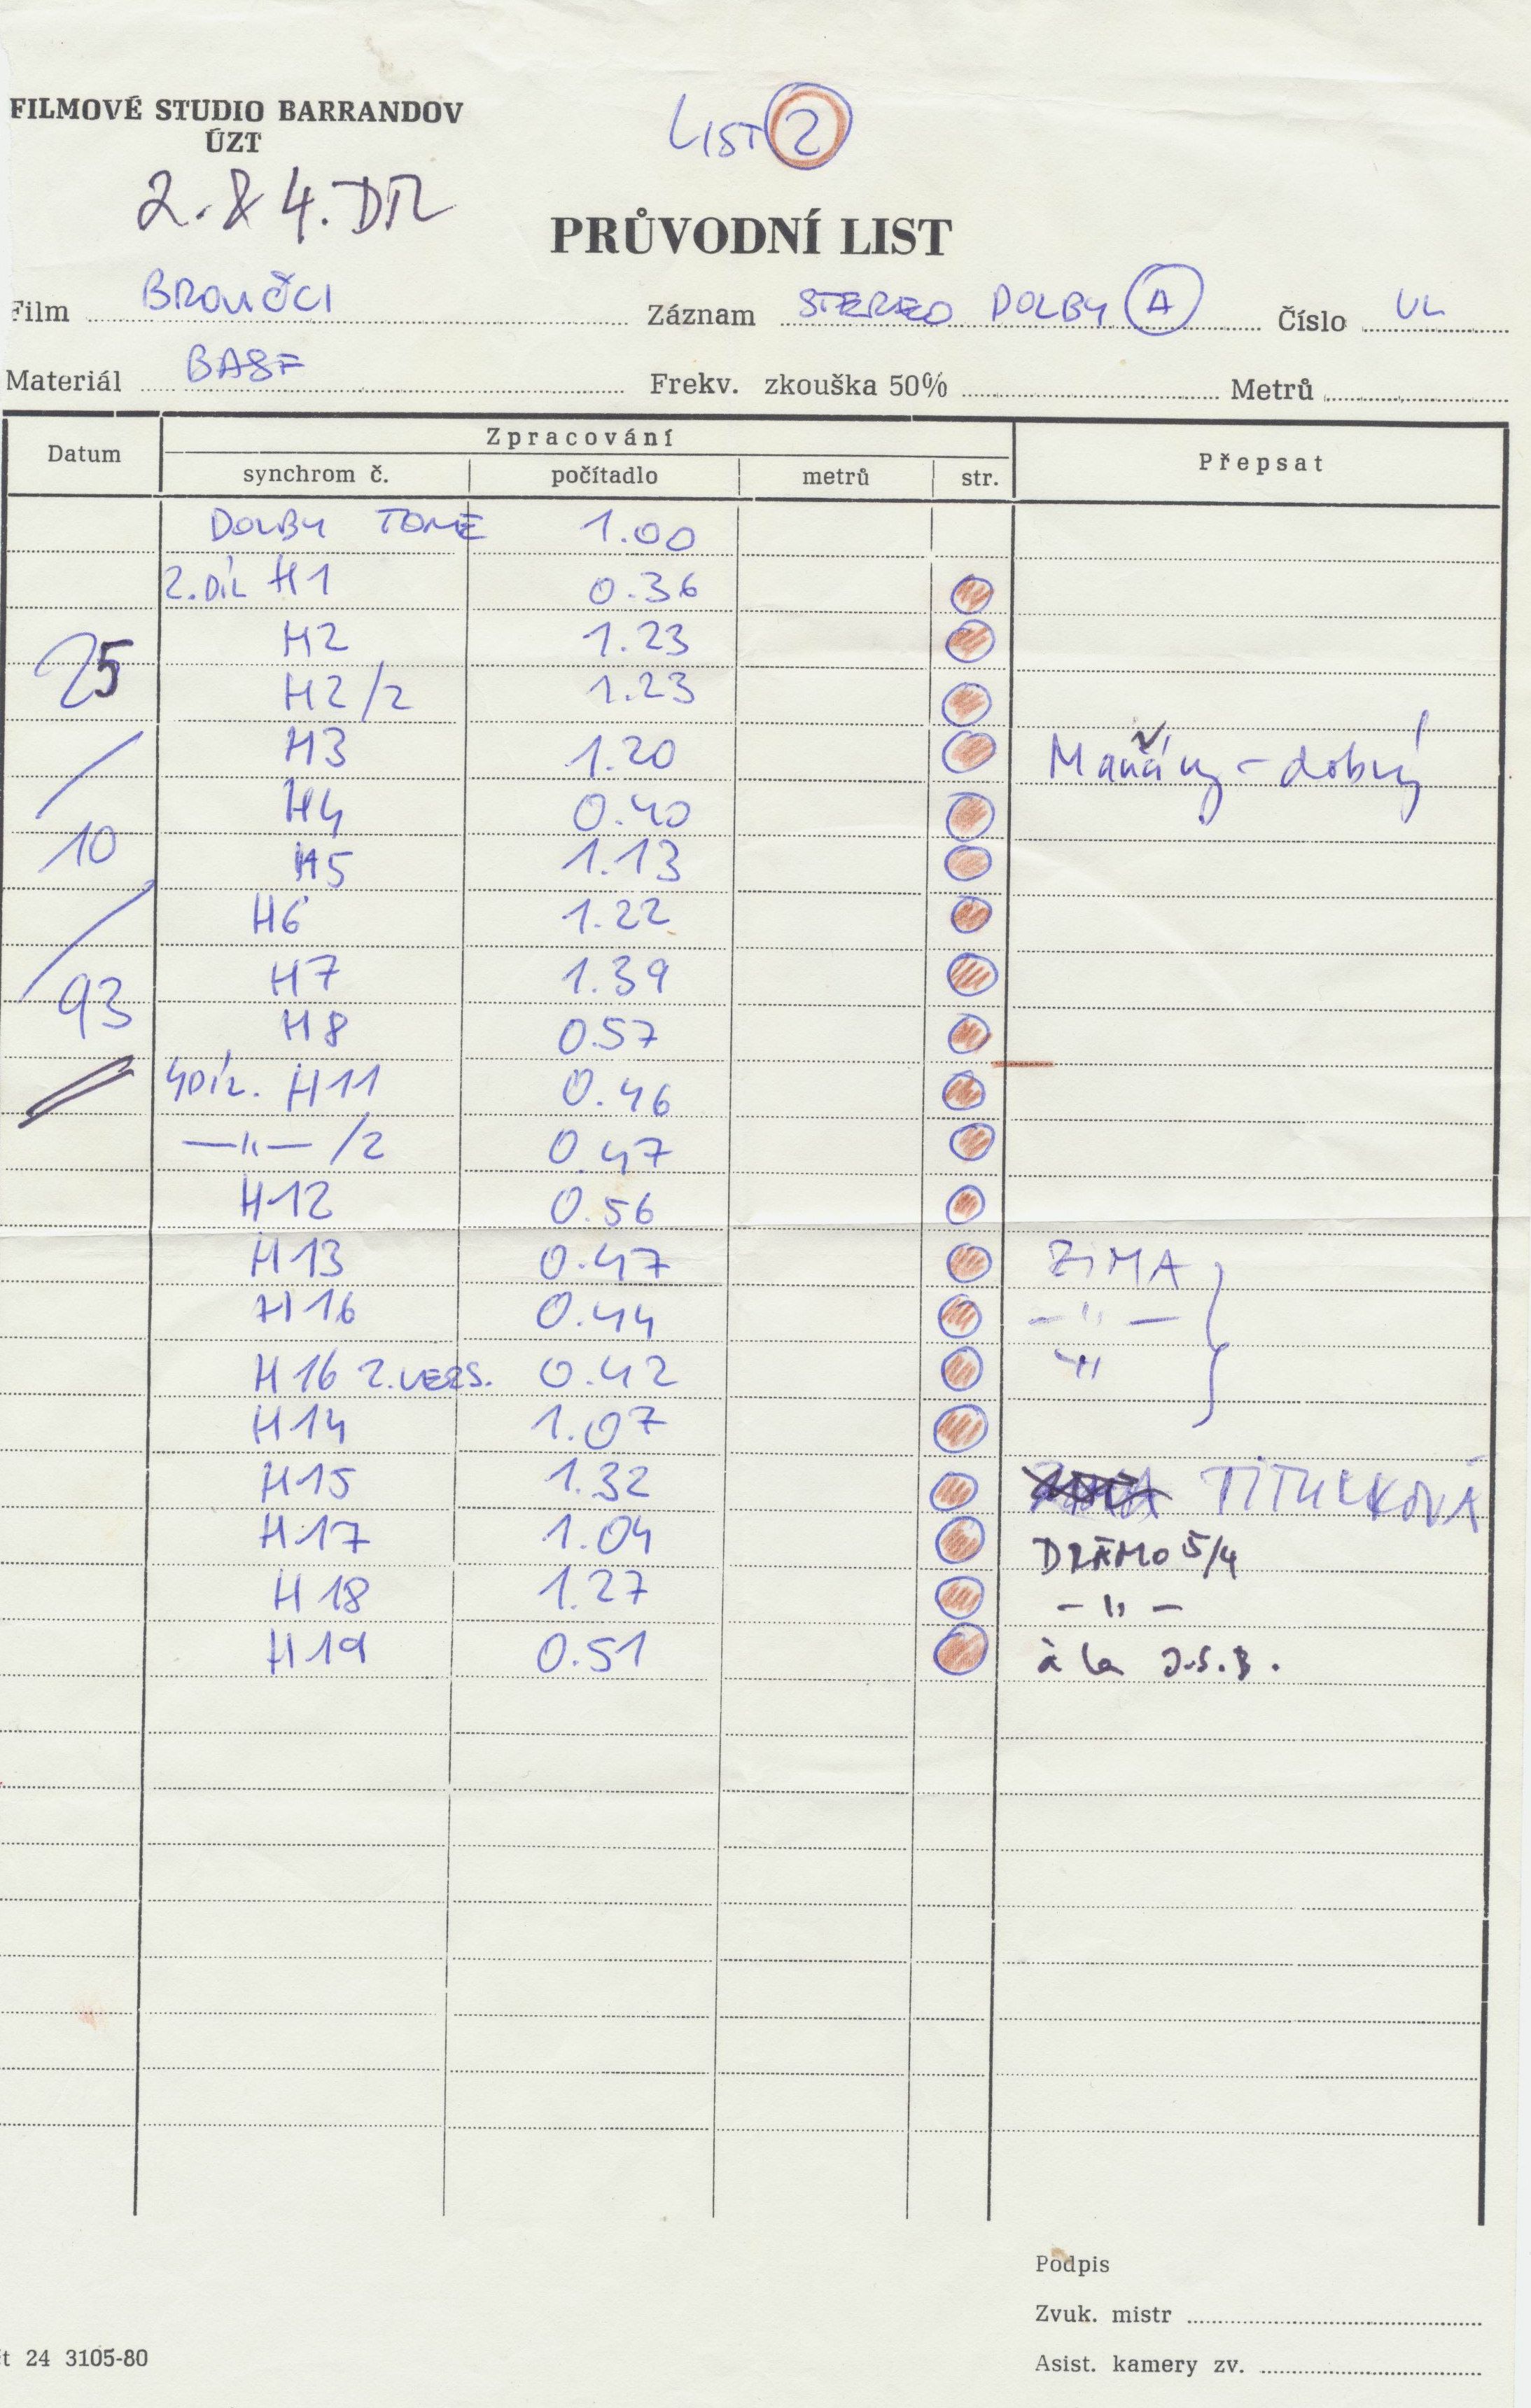 FILMOVÉ STUDIO BARRANDOV
ÚZT
LIST 2
2. & 4. DÍL
PRŮVODNÍ LIST
Film BROUČCI Záznam STEREO DOLBY A Číslo
Materiál BASF Frekv. zkouška 50% Metrů
Datum Zpracování Přepsat
synchrom č. počítadlo metrů str.
DOLBY TONE 1.00
2. DÍL H1 0.36
H2 1.23
25 H2/2 1.23
H3 1.20 dobrý
/ H4 0.40
10 H5 1.13
H6 1.22
/ H7 1.39
93 H8 0.57
4 DÍL. H11 0.46
—"— /2 0.47
H12 0.56
H13 0.47 ZIMA
H16 0.44 —"—
H16 2. VERS. 0.42 "
H14 1.07
H15 1.32 TITULKOVÁ
H17 1.04 5/4
H18 1.27 —"—
H19 0.51 à la J.S.B.
Podpis
Zvuk. mistr
Asist. kamery zv.
t 24 3105-80